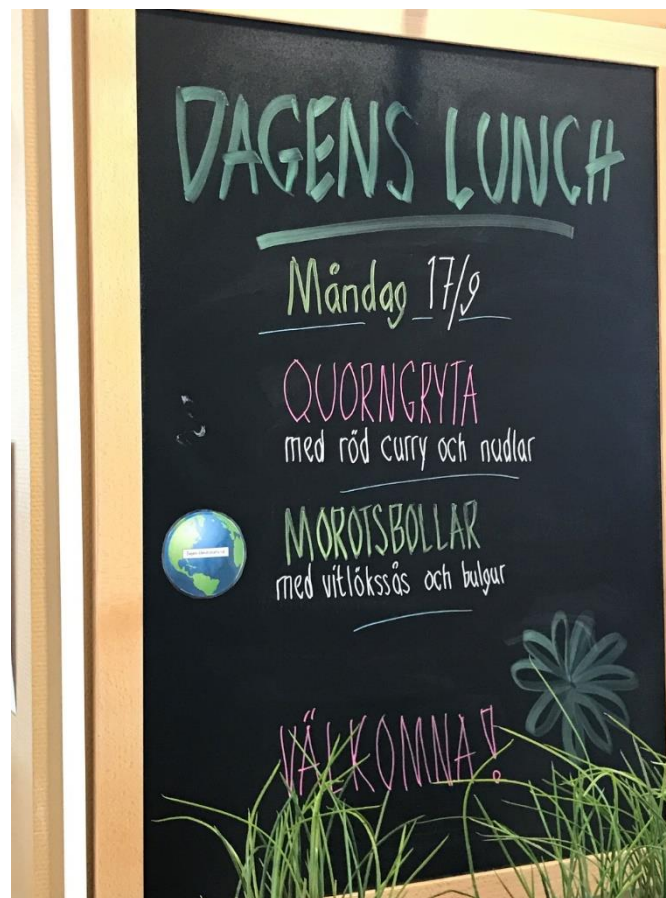 DAGENS LUNCH
Måndag 17/9
QUORNGRYTA
med röd curry och nudlar
MOROTSBOLLAR
med vitlökssås och bulgur
VÄLKOMNA!